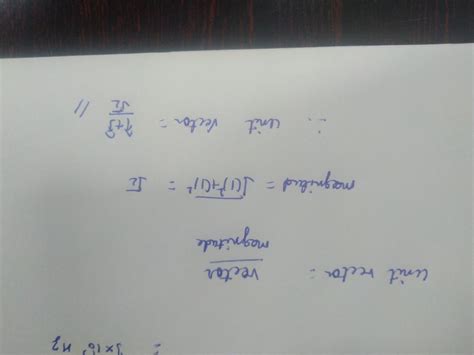 = 3×10⁷ Hz
unit vector = vector
magnitude
magnitud = √(1)²+(1)² = √2
∴ unit vector = î+ĵ
√2 //